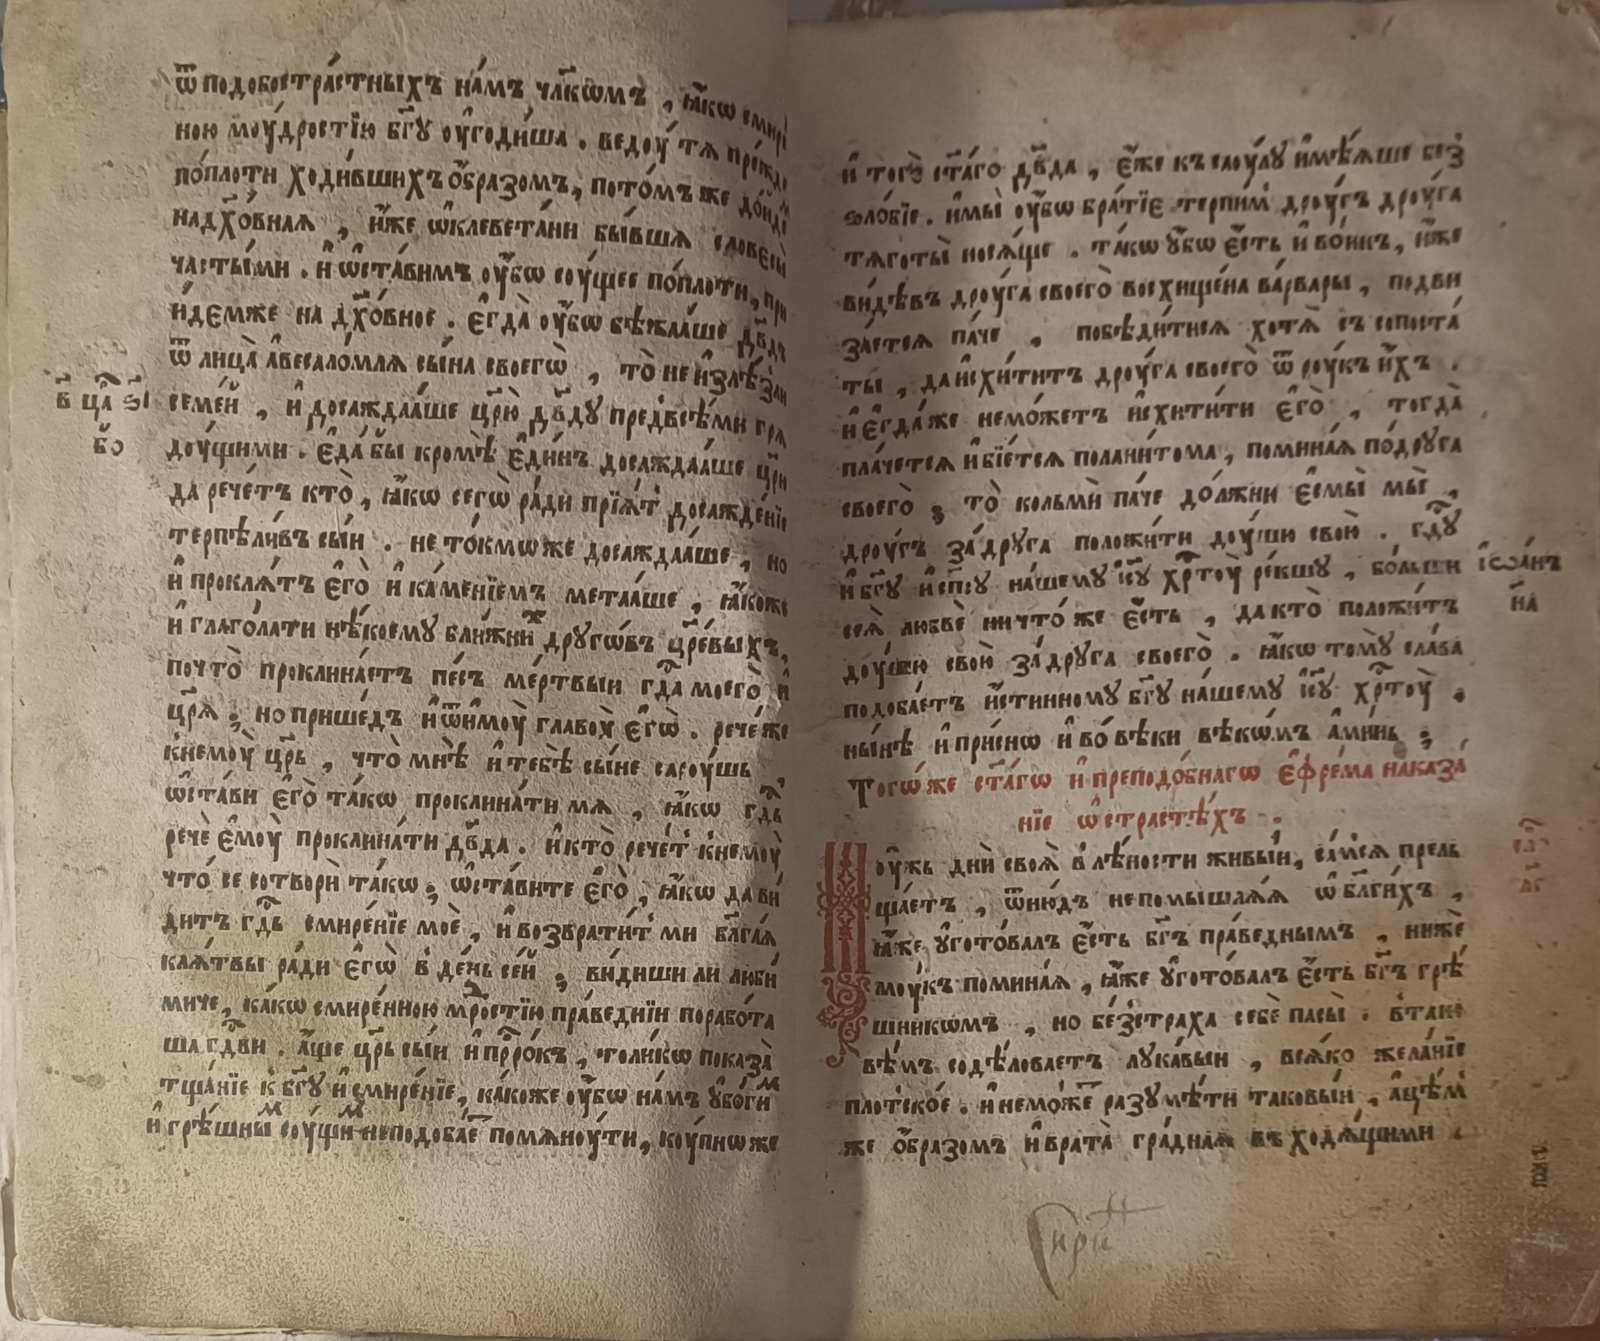 ѿ подобостра́стныхъ на́мъ чл҃кѡмъ , ꙗ҆́кѡ смире́
ною моу́дростїю бг҃ꙋ оу҆годи́ша . ведоу́ тѧ пре́жде
по́плоти ходи́вшихъ ѻ҆́бразомъ , пото́мъ же до́нде
надх҃о́внаѧ , и҆́же ѡ҆клевета́ни бы́вшѧ словесы̀
ча́стыми . и҆ ѡ҆ста́вимъ оу҆́бѡ соу́щее по́плоти , прi
и́демже на дх҃о́вное . є҆гда̀ оу҆́бѡ бѣжа́аше дв҃дъ
ѿ лица̀ а҆весало́млѧ сы́на своегѡ̀ , то̀ не и҆злѣ́зли
семе́й , и҆ досажда́аше цр҃ю̀ дв҃дꙋ пре́двсѣми грѧ
доу́щими . є҆да́ бы кромѣ̀ є҆ди́нъ досажда́аше цр҃ю
да рече́тъ кто̀ , ꙗ҆́кѡ сегѡ̀ ра́ди прїѧ́т досажде́нїе
терпѣли́въ сы́и . не то́кмѡже досажда́аше , но
и҆ проклѧ́тъ є҆го̀ и҆ ка́менїемъ мета́аше , ꙗ҆́коже
и҆ глаго́лати нѣ́коемꙋ бли́жних дрꙋгѡ́въ цр҃е́выхъ ,
почто̀ проклина́етъ пе́съ ме́ртвыи гдⷭ҇а моего̀ и҆
цр҃ѧ̀ ; но прише́дъ и҆ѿимоу̀ главоу̀ є҆гѡ̀ . рече́же
кнемоу̀ цр҃ь , что̀ мнѣ̀ и҆ тебѣ̀ сы́не сароу́шь ,
ѡ҆ста́ви є҆го̀ та́кѡ проклина́ти мѧ , ꙗ҆́кѡ гдⷭ҇ь
речѐ є҆моу̀ проклина́ти дв҃да . и҆ кто̀ рече́т кнемоу̀
что́ се сотворѝ та́кѡ ; ѡ҆ста́вите є҆го̀ , ꙗ҆́кѡ да ви́
дитъ гдⷭ҇ь смире́нїе моѐ , и҆ возврати́т ми бл҃га́ѧ
клѧ́твы ра́ди є҆гѡ̀ в де́нь се́й ; ви́диши ли люби́
миче , ка́кѡ смире́нною мрⷣостїю пра́веднїи порабо́та
ша гдⷭ҇ви . а҆́ще цр҃ь сы́и и҆ прⷪ҇ро́къ , толи́кѡ показа̀
тща́нїе к бг҃ꙋ и҆ смире́нїе , ка́коже оу҆́бѡ на́мъ ᲂу҆бо́гим
и҆ грѣ́шным соу́щим неподоба́ет помѧноу́ти , коу́пнѡже
в҃ цр҃ ѕ҃і
б҃о
и҆ того̀ ст҃а́го дв҃да , є҆́же к саоу́лꙋ и҆мѣ́ѧше без̾
ѕло́бїе . и҆ мы̀ оу҆́бѡ бра́тїе терпи́м дроу́гъ дроу́га
тѧготы̀ носѧ́ще . та́кѡ ꙋ҆́бѡ є҆́сть и҆ во́инъ , и҆́же
ви́дѣвъ дроу́га своего̀ восхище́на ва́рвары , подви
за́етсѧ па́че , побѣди́тисѧ хотѧ̀ съ сопоста́
ты , да и҆схи́титъ дроу́га своего̀ ѿ роу́къ и҆́хъ .
и҆ є҆гда́же немо́жетъ и҆схити́ти є҆го̀ , тогда̀
пла́четсѧ и҆ бїе́тсѧ полани́тома , помина́ѧ по́дрꙋга
своего̀ ; то̀ кольмѝ па́че до́лжни є҆смы̀ мы̀ ,
дроу́гъ за́ дрꙋга положи́ти доу́шю свою̀ . гдⷭ҇ꙋ
и҆ бг҃ꙋ и҆ сп҃сꙋ на́шемꙋ і҆с҃ꙋ хрⷭ҇тоу̀ ре́кшꙋ , бо́льши
сеѧ̀ любвѐ ничто́ же є҆́сть , да кто̀ положи́тъ
доу́шю свою̀ за́ дрꙋга своего̀ . ꙗ҆́кѡ томꙋ̀ сла́ва
подоба́етъ и҆́стинномꙋ бг҃ꙋ на́шемꙋ і҆с҃ꙋ хрⷭ҇тоу̀ .
ны́нѣ и҆ при́снѡ и҆ во́ вѣки вѣкѡ́мъ а҆ми́нь ;
і҆ѡа́нъ
н҃а
Тогѡ́же ст҃а́гѡ и҆ преподо́бнагѡ є҆фре́ма наказа́
нїе ѡ҆ страсте́хъ .
Поу҆́жь дни̑ своѧ̀ в лѣ́ности живы́и , са́мсѧ прель
ща́етъ , ѿню́дъ непомышлѧ́ѧ ѡ҆ бл҃ги́хъ ,
ꙗ҆́же ᲂу҆гото́валъ є҆́сть бг҃ъ пра́веднымъ , нижѐ
моу́къ помина́ѧ , ꙗ҆́же ᲂу҆гото́валъ є҆́сть бг҃ъ грѣ́
шникѡмъ , но бе́зстраха себѐ пасы̀ . в тако
вѣ́мъ содѣ́ловаетъ лꙋка́выи , всѧ́ко жела́нїе
пло́тско́е . и҆ немо́же разꙋмѣ́ти таковы́и , а҆ цѣ́м
же ѻ҆́бразомъ и҆ врата̀ гра́днаѧ въходѧ́щими .